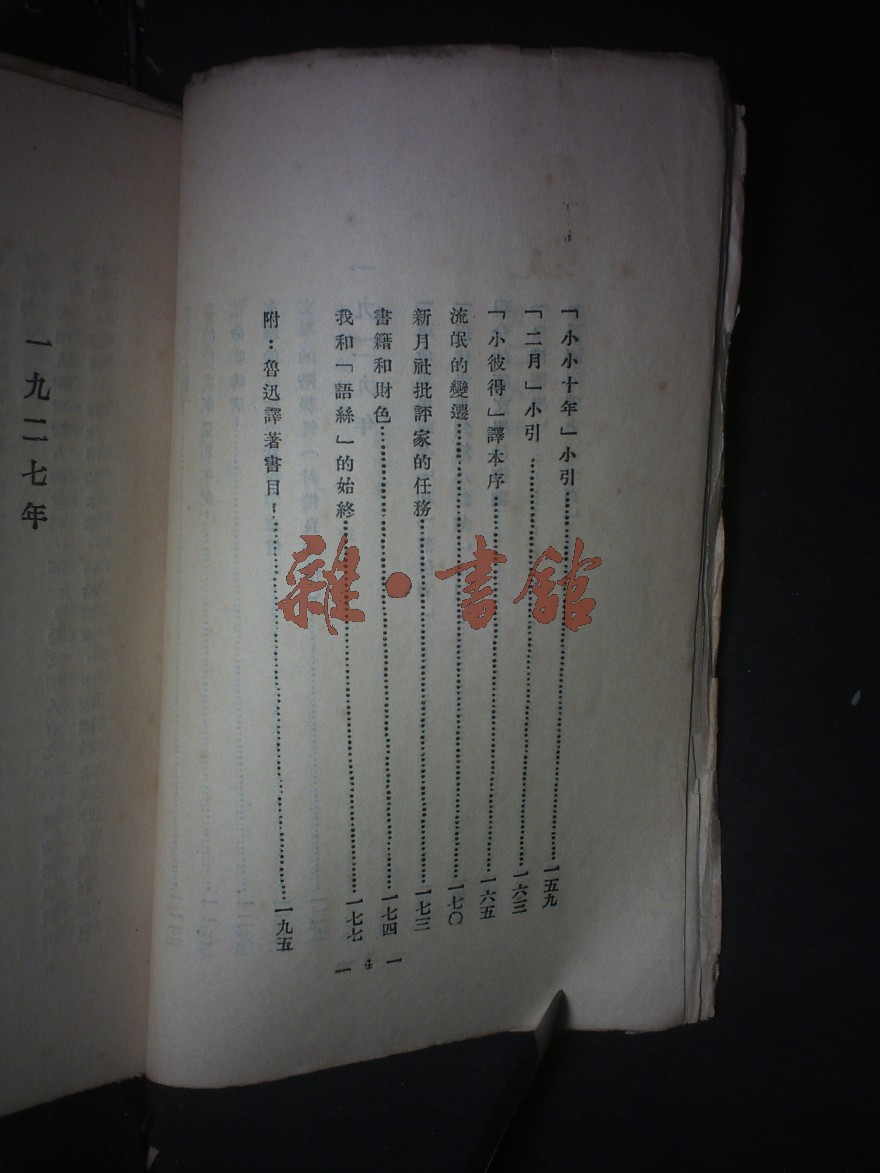 「小小十年」小引……一五九
「二月」小引……一六三
「小彼得」譯本序……一六五
流氓的變遷……一七〇
新月社批評家的任務……一七三
書籍和財色……一七四
我和「語絲」的始終……一七七
附：魯迅譯著書目……一九五
— 4 —
一九二七年
雜·書館